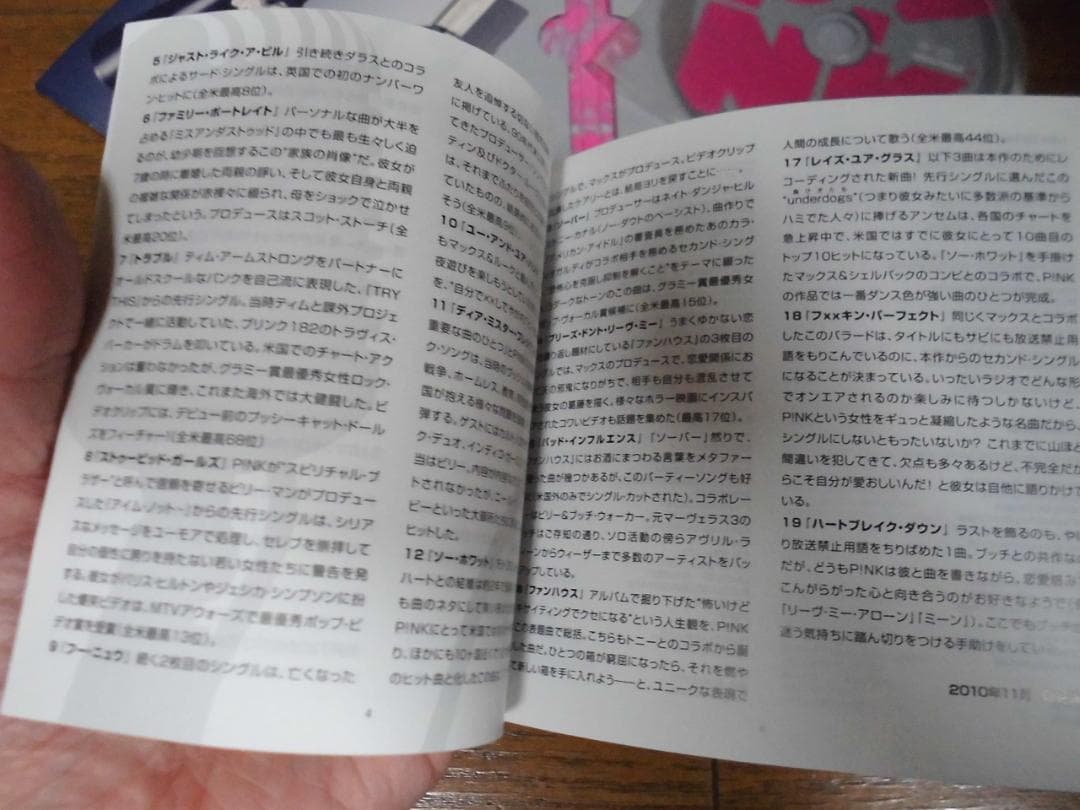 5『ジャスト・ライク・ア・ピル』 引き続きダラスとのコラ
ボによるサード・シングルは、英国での初のナンバーワ
ン・ヒットに(全米最高8位)。
6『ファミリー・ポートレイト』 パーソナルな曲が大半を
占める『ミスアンダストゥッド』の中でも最も生々しく迫
るのが、幼少期を回想するこの“家族の肖像”だ。彼女が
7歳の時に離婚した両親の諍い、そして彼女自身と両親
の複雑な関係が赤裸々に綴られ、母をショックで泣かせ
てしまったという。プロデュースはスコット・ストーチ(全
米最高20位)。
7『トラブル』 ティム・アームストロングをパートナーに
オールドスクールなパンクを自己流に表現した、『TRY
THIS』からの先行シングル。当時ティムと課外プロジェ
クトで一緒に活動していた、ブリンク182のトラヴィス・
バーカーがドラムを叩いている。米国でのチャート・アク
ションは重わなかったが、グラミー賞最優秀女性ロック・
ヴォーカル賞に輝き、これまた海外では大健闘した。ビ
デオクリップには、デビュー前のプッシーキャット・ドール
ズをフィーチャー!(全米最高68位)
8『ストゥーピッド・ガールズ』 P!NKが“スピリチャル・ブ
ラザー”と呼んで信頼を寄せるビリー・マンがプロデュー
スした『アイム・ノット…』からの先行シングルは、シリア
スなメッセージをユーモアで処理し、セレブを崇拝して
自分の個性に誇りを持たない若い女性たちに警告を発
する。彼女がパリス・ヒルトンやジェシカ・シンプソンに扮
した爆笑ビデオは、MTVアウォーズで最優秀ポップ・ビ
デオ賞を受賞(全米最高13位)。
9『フー・ニュウ』 続く2枚目のシングルは、亡くなった
4
友人を追悼する
に掲げている。90年
てきたプロデューサー
ティン及びドクター
は、それまで
ていたものの、
そう(全米最高
10『ユー・アンド・ユア
もマックス&ルークと
夜遊びを楽しもうとしている
を、“自分で××して
11『ディア・ミスター・プレ
重要な曲のひとつと
ク・ソングは、当時のブッシュ
戦争、ホームレス、教育、
国が抱える様々な問題
弾する。ゲストには
ク・デュオ、インディゴ・ガー
当はビリー。内容が
トされなかったが、
ビーといった大
ヒットした。
12『ソー・ホワット』
ハートとの結婚は
も曲のネタにして
P!NKにとって米国での
り、ほかにも10ヶ国近く
のヒット曲と化したこの
ングルで、マックスがプロデュース。ビデオクリップ
したケアリーとは、結局ヨリを戻すことに……。
『ソーバー』 プロデューサーはネイト・ダンジャ・ヒル
ー・カナル(ノー・ダウトのベーシスト)、曲作りで
メリカン・アイドル』の審査員を務めたあのカラ・
オガルディがコラボ相手を務めるセカンド・シング
心を克服し抑制を解くこと”をテーマに綴った
ダークなトーンのこの曲は、グラミー賞最優秀女
ヴォーカル賞候補に(全米最高15位)。
プリーズ・ドント・リーヴ・ミー』 うまくゆかない恋
繰り返し題材にしている『ファンハウス』の3枚目の
ルでは、マックスのプロデュースで、恋愛関係にお
の邪鬼になりがちで、相手も自分も混乱させて
う彼女の葛藤を描く。様々なホラー映画にインスパ
されたコワいビデオも話題を集めた(最高17位)。
『バッド・インフルエンス』 『ソーバー』然りで、
ァンハウス』にはお酒にまつわる言葉をメタファー
った曲が幾つかあるが、このパーティーソングも好
(米国外のみでシングル・カットされた)。コラボレー
はビリー&ブッチ・ウォーカー。元マーヴェラス3の
チはご存知の通り、ソロ活動の傍らアヴリル・ラ
ィーンからウィーザーまで多数のアーティストをバッ
アップしている。
『ファンハウス』 アルバムで掘り下げた“怖いけど
サイティングでクセになる”という人生観を、P!NK
この表題曲で総括。こちらもトニーとのコラボから誕
した曲だ。ひとつの箱が窮屈になったら、それを燃や
て新しい箱を手に入れよう――と、ユニークな表現で
人間の成長について歌う(全米最高44位)。
17『レイズ・ユア・グラス』 以下3曲は本作のためにレ
コーディングされた新曲! 先行シングルに選んだこの
“underdogs”(つまり彼女みたいに多数派の基準から
ハミでた人々)に捧げるアンセムは、各国のチャートを
急上昇中で、米国ではすでに彼女にとって10曲目の
トップ10ヒットになっている。『ソー・ホワット』を手掛け
たマックス&シェルバックのコンビとのコラボで、P!NK
の作品では一番ダンス色が強い曲のひとつが完成。
18『フ××キン・パーフェクト』 同じくマックスとコラボ
したこのバラードは、タイトルにもサビにも放送禁止用
語をもりこんでいるのに、本作からのセカンド・シングル
になることが決まっている。いったいラジオでどんな形
でオンエアされるのか楽しみに待つしかないけど、
P!NKという女性をギュっと凝縮したような名曲だから、
シングルにしないともったいないか? これまでに山ほど
間違いを犯してきて、欠点も多々あるけど、不完全だか
らこそ自分が愛おしいんだ! と彼女は自他に語りかけて
いる。
19『ハートブレイク・ダウン』 ラストを飾るのも、やは
り放送禁止用語をちりばめた1曲。ブッチとの共作な
だが、どうもP!NKは彼と曲を書きながら、恋愛絡み
こんがらがった心と向き合うのがお好きなようで(
『リーヴ・ミー・アローン』『ミーン』)。ここでもブッチ
迷う気持ちに踏ん切りをつける手助けをしてい
2010年11月